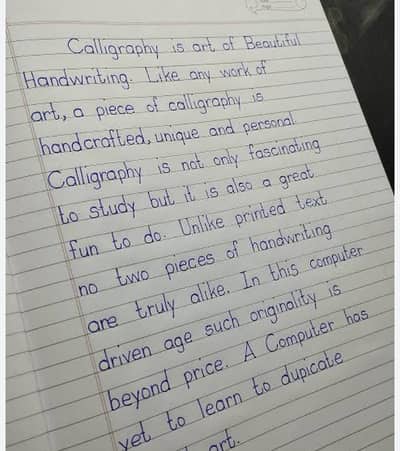 Calligraphy is art of Beautiful
Handwriting. Like any work of
art, a piece of calligraphy is
handcrafted, unique and personal.
Calligraphy is not only fascinating
to study but it is also a great
fun to do. Unlike printed text
no two pieces of handwriting
are truly alike. In this computer
driven age such originality is
beyond price. A Computer has
yet to learn to dupicate
art.